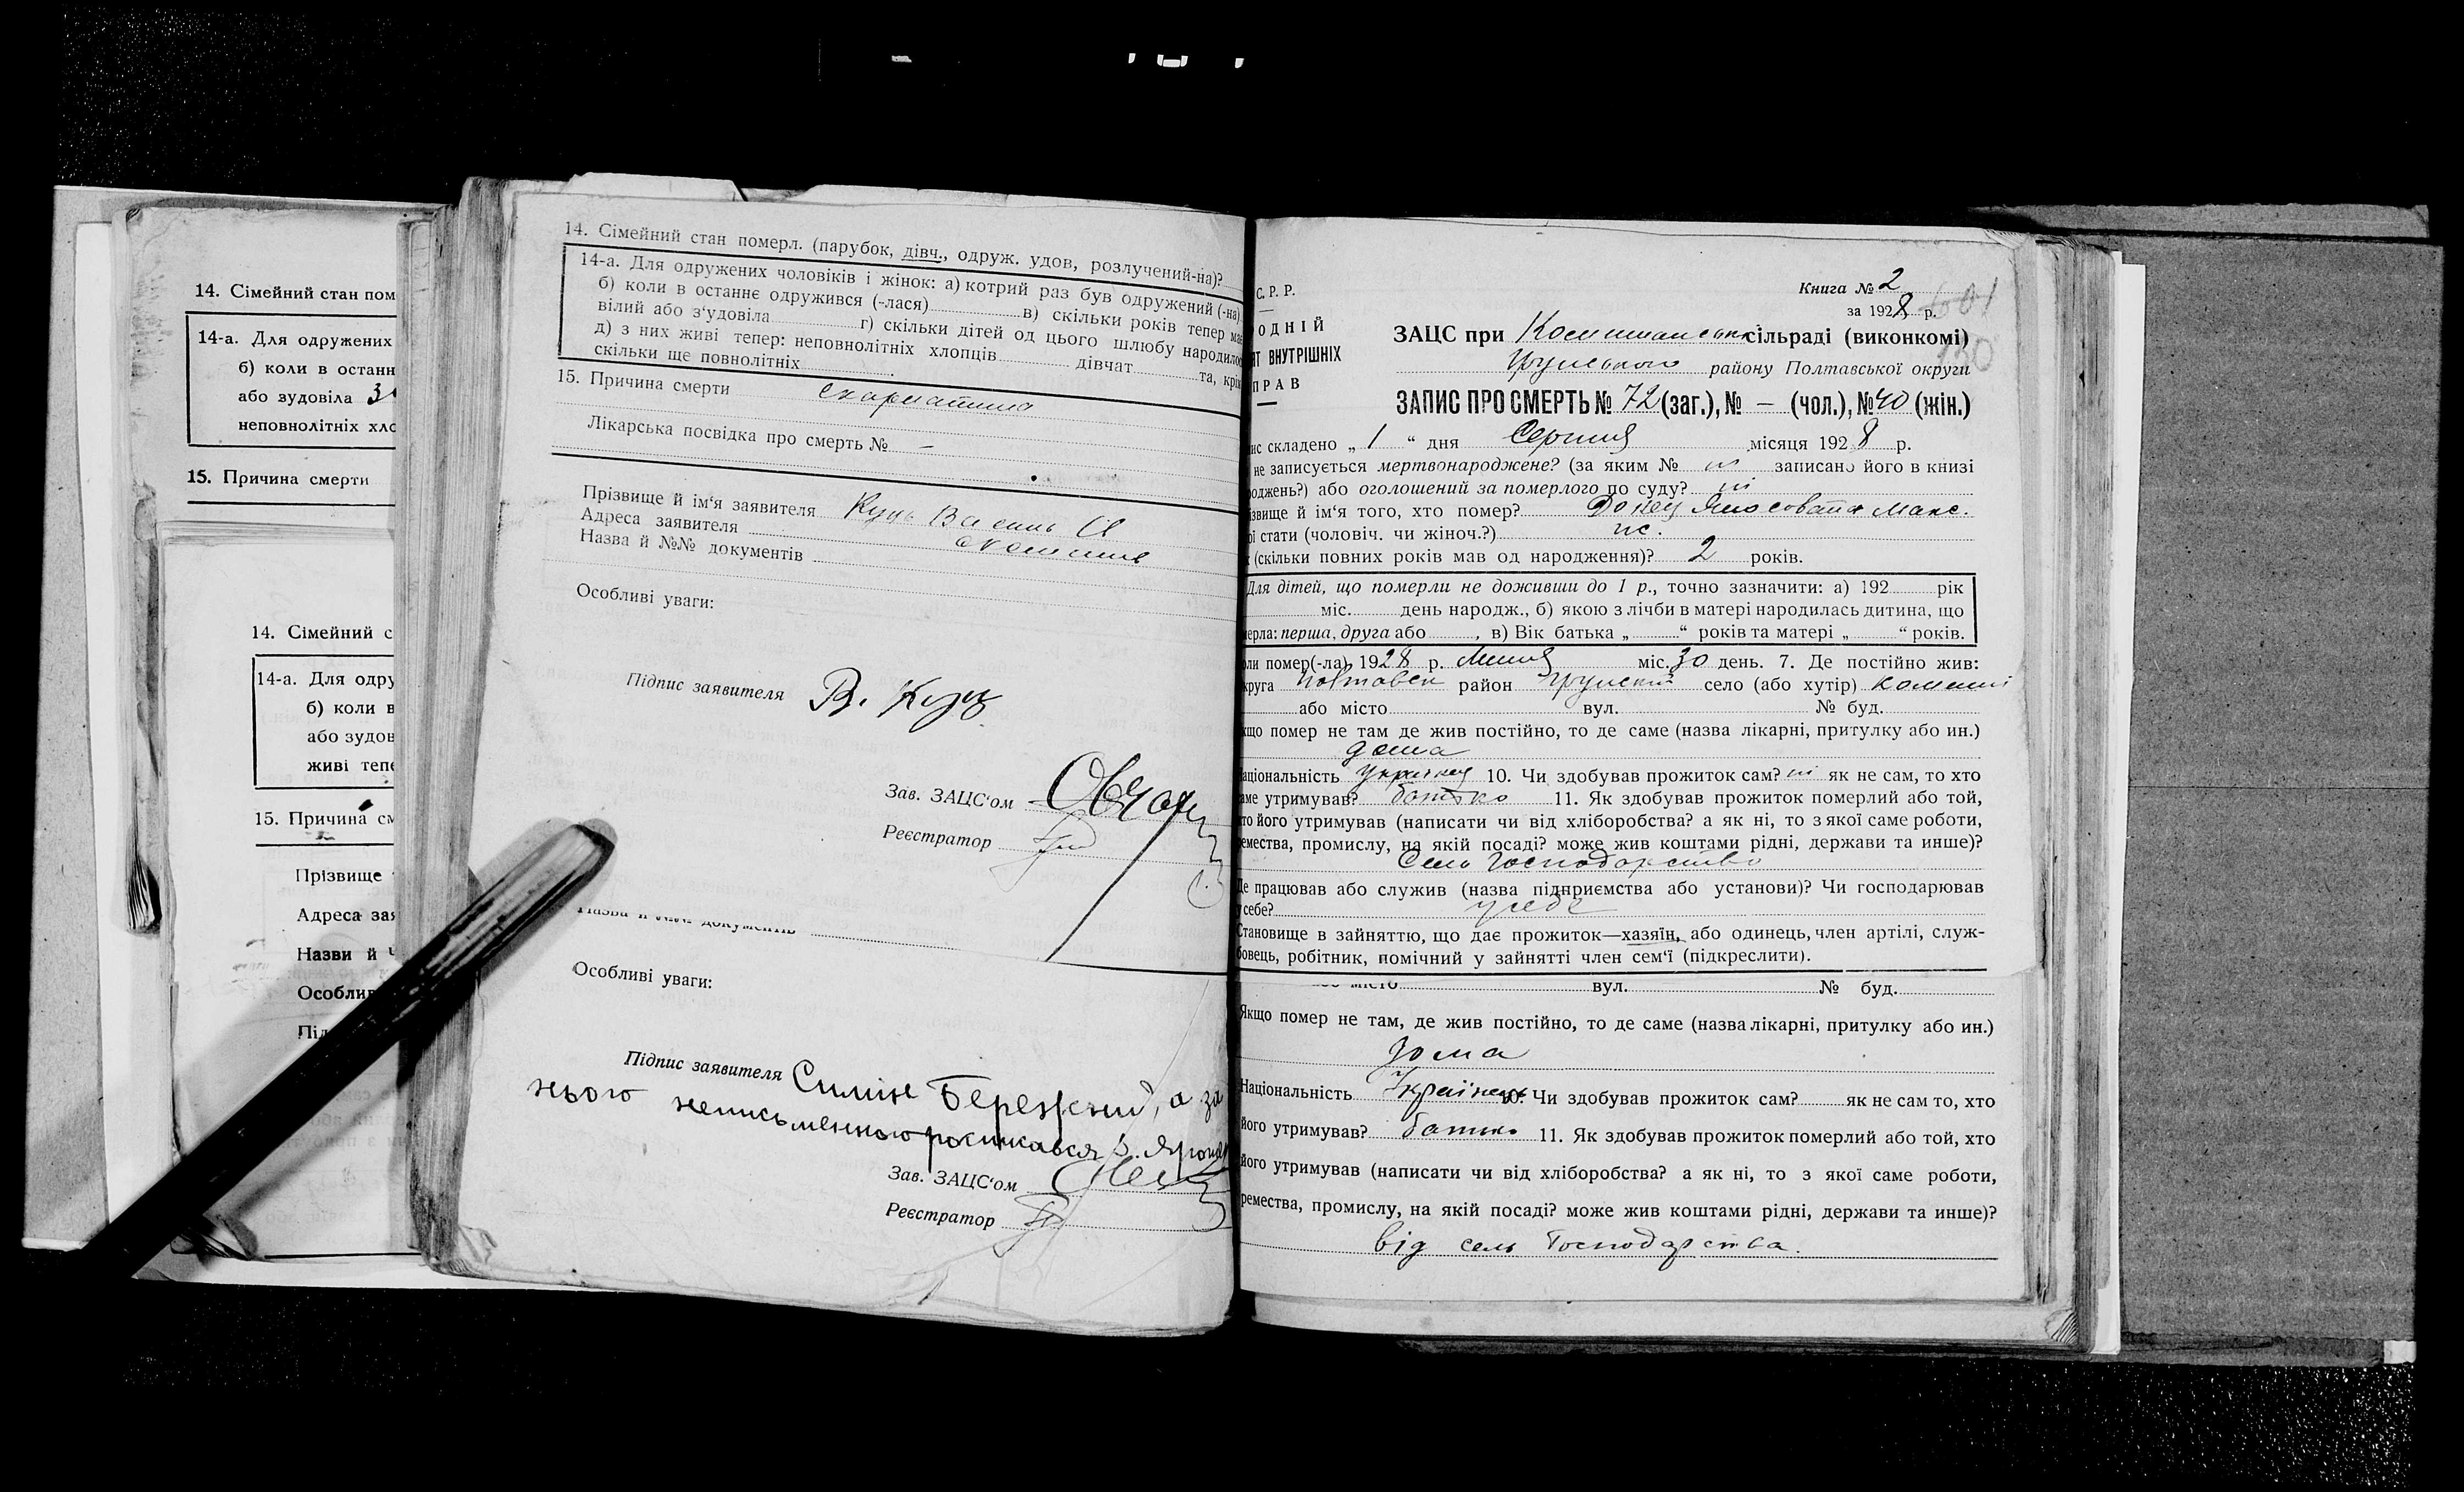 14. Сімейний стан пом
14-а. Для одружених
б) коли в останн
або зудовіла
неповнолітніх хло
15. Причина смерти
14. Сімейний с
14-а. Для одру
б) коли в
або зудов
живі тепе
15. Причина см
Прізвище
Адреса зая
Назви й
Особлив
Під
14. Сімейний стан померл. (парубок, дівч., одруж. удов, розлучений-на)?
14-а. Для одружених чоловіків і жінок: а) котрий раз був одружений (-на)
б) коли в останнє одружився (-лася) в) скільки років тепер має
вілий або з‘удовіла г) скільки дітей од цього шлюбу народилос
д) з них живі тепер: неповнолітніх хлопців дівчат та, крім
скільки ще повнолітніх
15. Причина смерти скарлатина
Лікарська посвідка про смерть № –
Прізвище й ім‘я заявителя Куць Василь
Адреса заявителя
Назва й №№ документів
Особливі уваги:
Підпис заявителя В. Куц
Зав. ЗАЦС‘ом Овчар
Реєстратор
Назва й №№ документів
Особливі уваги:
Підпис заявителя Симіж Бережний, а за
нього неписьменного росписався
Зав. ЗАЦС‘ом
Реєстратор
С. Р. Р.
ОДНІЙ
ЯТ ВНУТРІШНІХ
ПРАВ
Книга № 2
за 1928 р. 601
ЗАЦС при сільраді (виконкомі)
130
Грунського району Полтавської округи
ЗАПИС ПРО СМЕРТЬ № 72 (заг.), № – (чол.), № 40 (жін.)
ис складено „ 1 “ дня Серпня місяця 1928 р.
не записується мертвонароджене? (за яким № ні записано його в книзі
роджень?) або оголошений за померлого по суду? ні
ізвище й ім‘я того, хто помер? Донец Макс.
ої стати (чоловіч. чи жіноч.?) ж.
(скільки повних років мав од народження)? 2 років.
Для дітей, що померли не доживши до 1 р., точно зазначити: а) 192 рік
міс. день народж., б) якою з лічби в матері народилась дитина, що
мерла: перша, друга або , в) Вік батька „ “ років та матері „ “ років.
оли помер(-ла) 1928 р. Липня міс. 30 день. 7. Де постійно жив:
круга Полтавськ район Грунский село (або хутір)
або місто вул. № буд.
кщо помер не там де жив постійно, то де саме (назва лікарні, притулку або ин.)
дома
аціональність 10. Чи здобував прожиток сам? ні як не сам, то хто
аме утримував? батько 11. Як здобував прожиток померлий або той,
то його утримував (написати чи від хліборобства? а як ні, то з якої саме роботи,
емества, промислу, на якій посаді? може жив коштами рідні, держави та инше)?
Сель Господарство
Де працював або служив (назва підприємства або установи)? Чи господарював
у себе? у себе
Становище в зайняттю, що дає прожиток—хазяїн, або одинець, член артілі, служ-
бовець, робітник, помічний у зайнятті член сем‘ї (підкреслити).
або місто вул. № буд.
Якщо помер не там, де жив постійно, то де саме (назва лікарні, притулку або ин.)
дома
Національність Українець 10. Чи здобував прожиток сам? як не сам то, хто
його утримував? батько 11. Як здобував прожиток померлий або той, хто
його утримував (написати чи від хліборобства? а як ні, то з якої саме роботи,
ремества, промислу, на якій посаді? може жив коштами рідні, держави та инше)?
від сель Господарства.